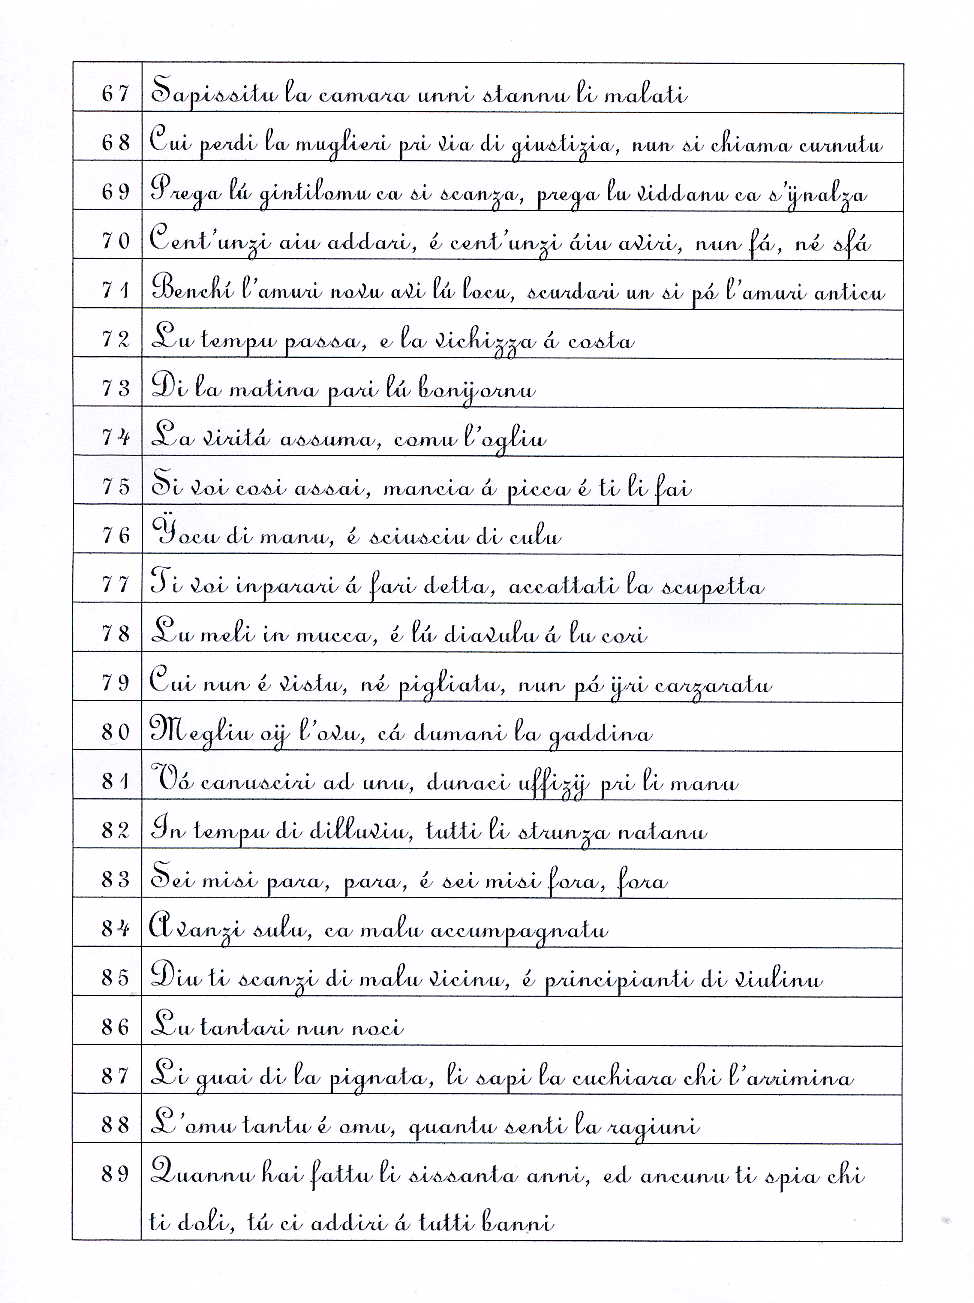 67 Sapissitu la camara unni stannu li malati
68 Cui perdi la muglieri pri via di giustizia, nun si chiama curnutu
69 Prega lú gintilomu ca si scanza, prega lu viddanu ca s'ÿnalza
70 Cent'unzi aiu addari, é cent'unzi áiu aviri, nun fá, né sfá
71 Benchí l'amuri novu avi lú locu, scurdari un si pó l'amuri anticu
72 Lu tempu passa, e la vichizza á costa
73 Di la matina pari lú bonÿornu
74 La viritá assuma, comu l'ogliu
75 Si voi cosi assai, mancia á picca é ti li fai
76 Ÿocu di manu, é sciusciu di culu
77 Ti voi inparari á fari detta, accattati la scupetta
78 Lu meli in mucca, é lú diavulu á lu cori
79 Cui nun é vistu, né pigliatu, nun pó ÿri carzaratu
80 Megliu oÿ l'ovu, cá dumani la gaddina
81 Vó canusciri ad unu, dunaci uffizÿ pri li manu
82 In tempu di dilluviu, tutti li strunza natanu
83 Sei misi para, para, é sei misi fora, fora
84 Avanzi sulu, ca malu accumpagnatu
85 Diu ti scanzi di malu vicinu, é principianti di viulinu
86 Lu tantari nun noci
87 Li guai di la pignata, li sapi la cuchiara chi l'arrimina
88 L'omu tantu é omu, quantu senti la ragiuni
89 Quannu hai fattu li sissanta anni, ed ancunu ti spia chi
ti doli, tú ci addiri á tutti banni